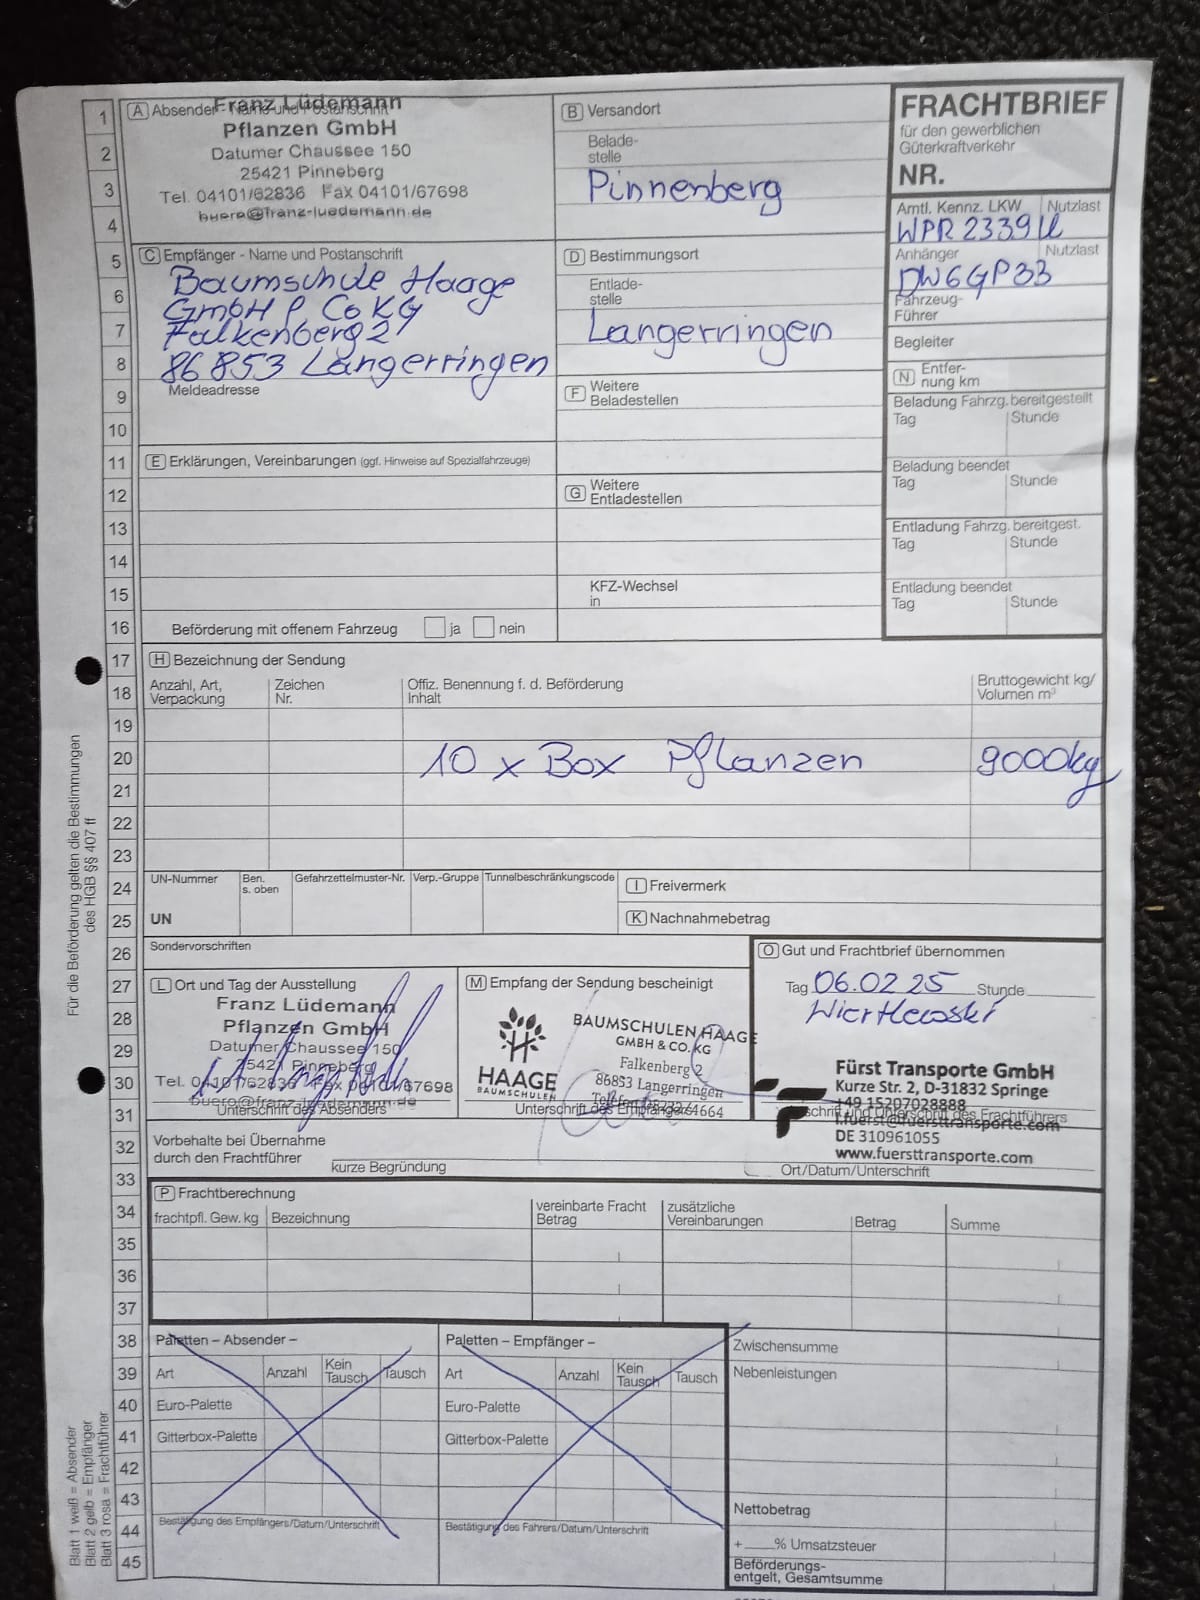 FRACHTBRIEF
für den gewerblichen
Güterkraftverkehr
NR.
A Absender - Name und Postanschrift
Franz Lüdemann
Pflanzen GmbH
Datumer Chaussee 150
25421 Pinneberg
Tel. 04101/62836 Fax 04101/67698
buero@franz-luedemann.de
B Versandort
Belade-
stelle
Pinnenberg
Amtl. Kennz. LKW Nutzlast
WPR 2339U
Anhänger Nutzlast
DW6GP33
Fahrzeug-
Führer
Begleiter
N Entfer-
nung km
C Empfänger - Name und Postanschrift
Baumschule Haage
GmbH & Co KG
Falkenberg 2
86853 Langerringen
Meldeadresse
D Bestimmungsort
Entlade-
stelle
Langerringen
F Weitere
Beladestellen
Beladung Fahrzg. bereitgestellt
Tag Stunde
E Erklärungen, Vereinbarungen (ggf. Hinweise auf Spezialfahrzeuge)
G Weitere
Entladestellen
Beladung beendet
Tag Stunde
Entladung Fahrzg. bereitgest.
Tag Stunde
KFZ-Wechsel
in
Entladung beendet
Tag Stunde
Beförderung mit offenem Fahrzeug ja nein
H Bezeichnung der Sendung
Anzahl, Art,
Verpackung
Zeichen
Nr.
Offiz. Benennung f. d. Beförderung
Inhalt
Bruttogewicht kg/
Volumen m³
10 x Box Pflanzen 9000kg
UN-Nummer
Ben.
s. oben
Gefahrzettelmuster-Nr. Verp.-Gruppe Tunnelbeschränkungscode
UN
I Freivermerk
K Nachnahmebetrag
Sondervorschriften
L Ort und Tag der Ausstellung
Franz Lüdemann
Pflanzen GmbH
Datumer Chaussee 150
25421 Pinneberg
Tel. 04101/62836 Fax 04101/67698
buero@franz-luedemann.de
Unterschrift des Absenders
M Empfang der Sendung bescheinigt
HAAGE
BAUMSCHULEN
BAUMSCHULEN HAAGE
GMBH & CO. KG
Falkenberg 2
86853 Langerringen
Unterschrift des Empfängers
O Gut und Frachtbrief übernommen
Tag 06.02.25 Stunde
Fürst Transporte GmbH
Kurze Str. 2, D-31832 Springe
+49 15207028888
f.fuerst@fuersttransporte.com
DE 310961055
www.fuersttransporte.com
Unterschrift des Frachtführers
Ort/Datum/Unterschrift
Vorbehalte bei Übernahme
durch den Frachtführer
kurze Begründung
P Frachtberechnung
frachtpfl. Gew. kg Bezeichnung
vereinbarte Fracht
Betrag
zusätzliche
Vereinbarungen
Betrag Summe
Paletten – Absender –
Art Anzahl Kein
Tausch Tausch
Euro-Palette
Gitterbox-Palette
Bestätigung des Empfängers/Datum/Unterschrift
Paletten – Empfänger –
Art Anzahl Kein
Tausch Tausch
Euro-Palette
Gitterbox-Palette
Bestätigung des Fahrers/Datum/Unterschrift
Zwischensumme
Nebenleistungen
Nettobetrag
+ % Umsatzsteuer
Beförderungs-
entgelt, Gesamtsumme
Für die Beförderung gelten die Bestimmungen
des HGB §§ 407 ff
Blatt 1 weiß = Absender
Blatt 2 gelb = Empfänger
Blatt 3 rosa = Frachtführer
1
2
3
4
5
6
7
8
9
10
11
12
13
14
15
16
17
18
19
20
21
22
23
24
25
26
27
28
29
30
31
32
33
34
35
36
37
38
39
40
41
42
43
44
45